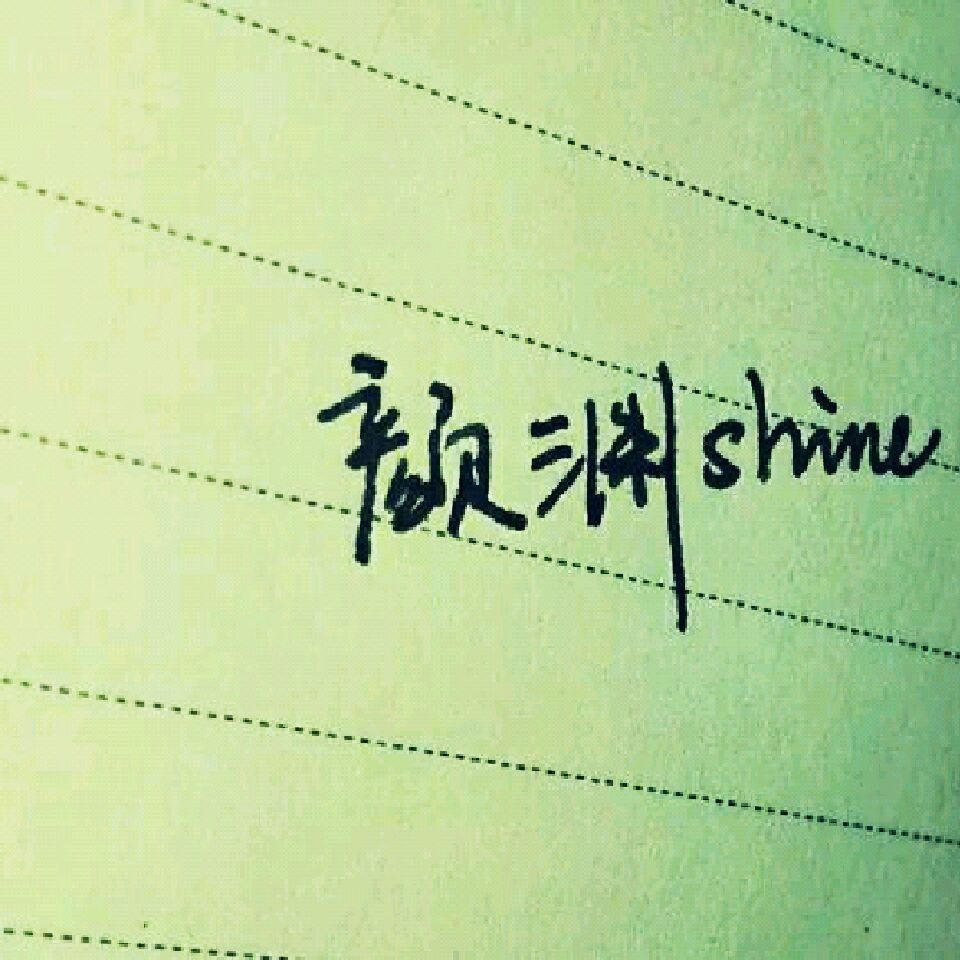 颜渊shine